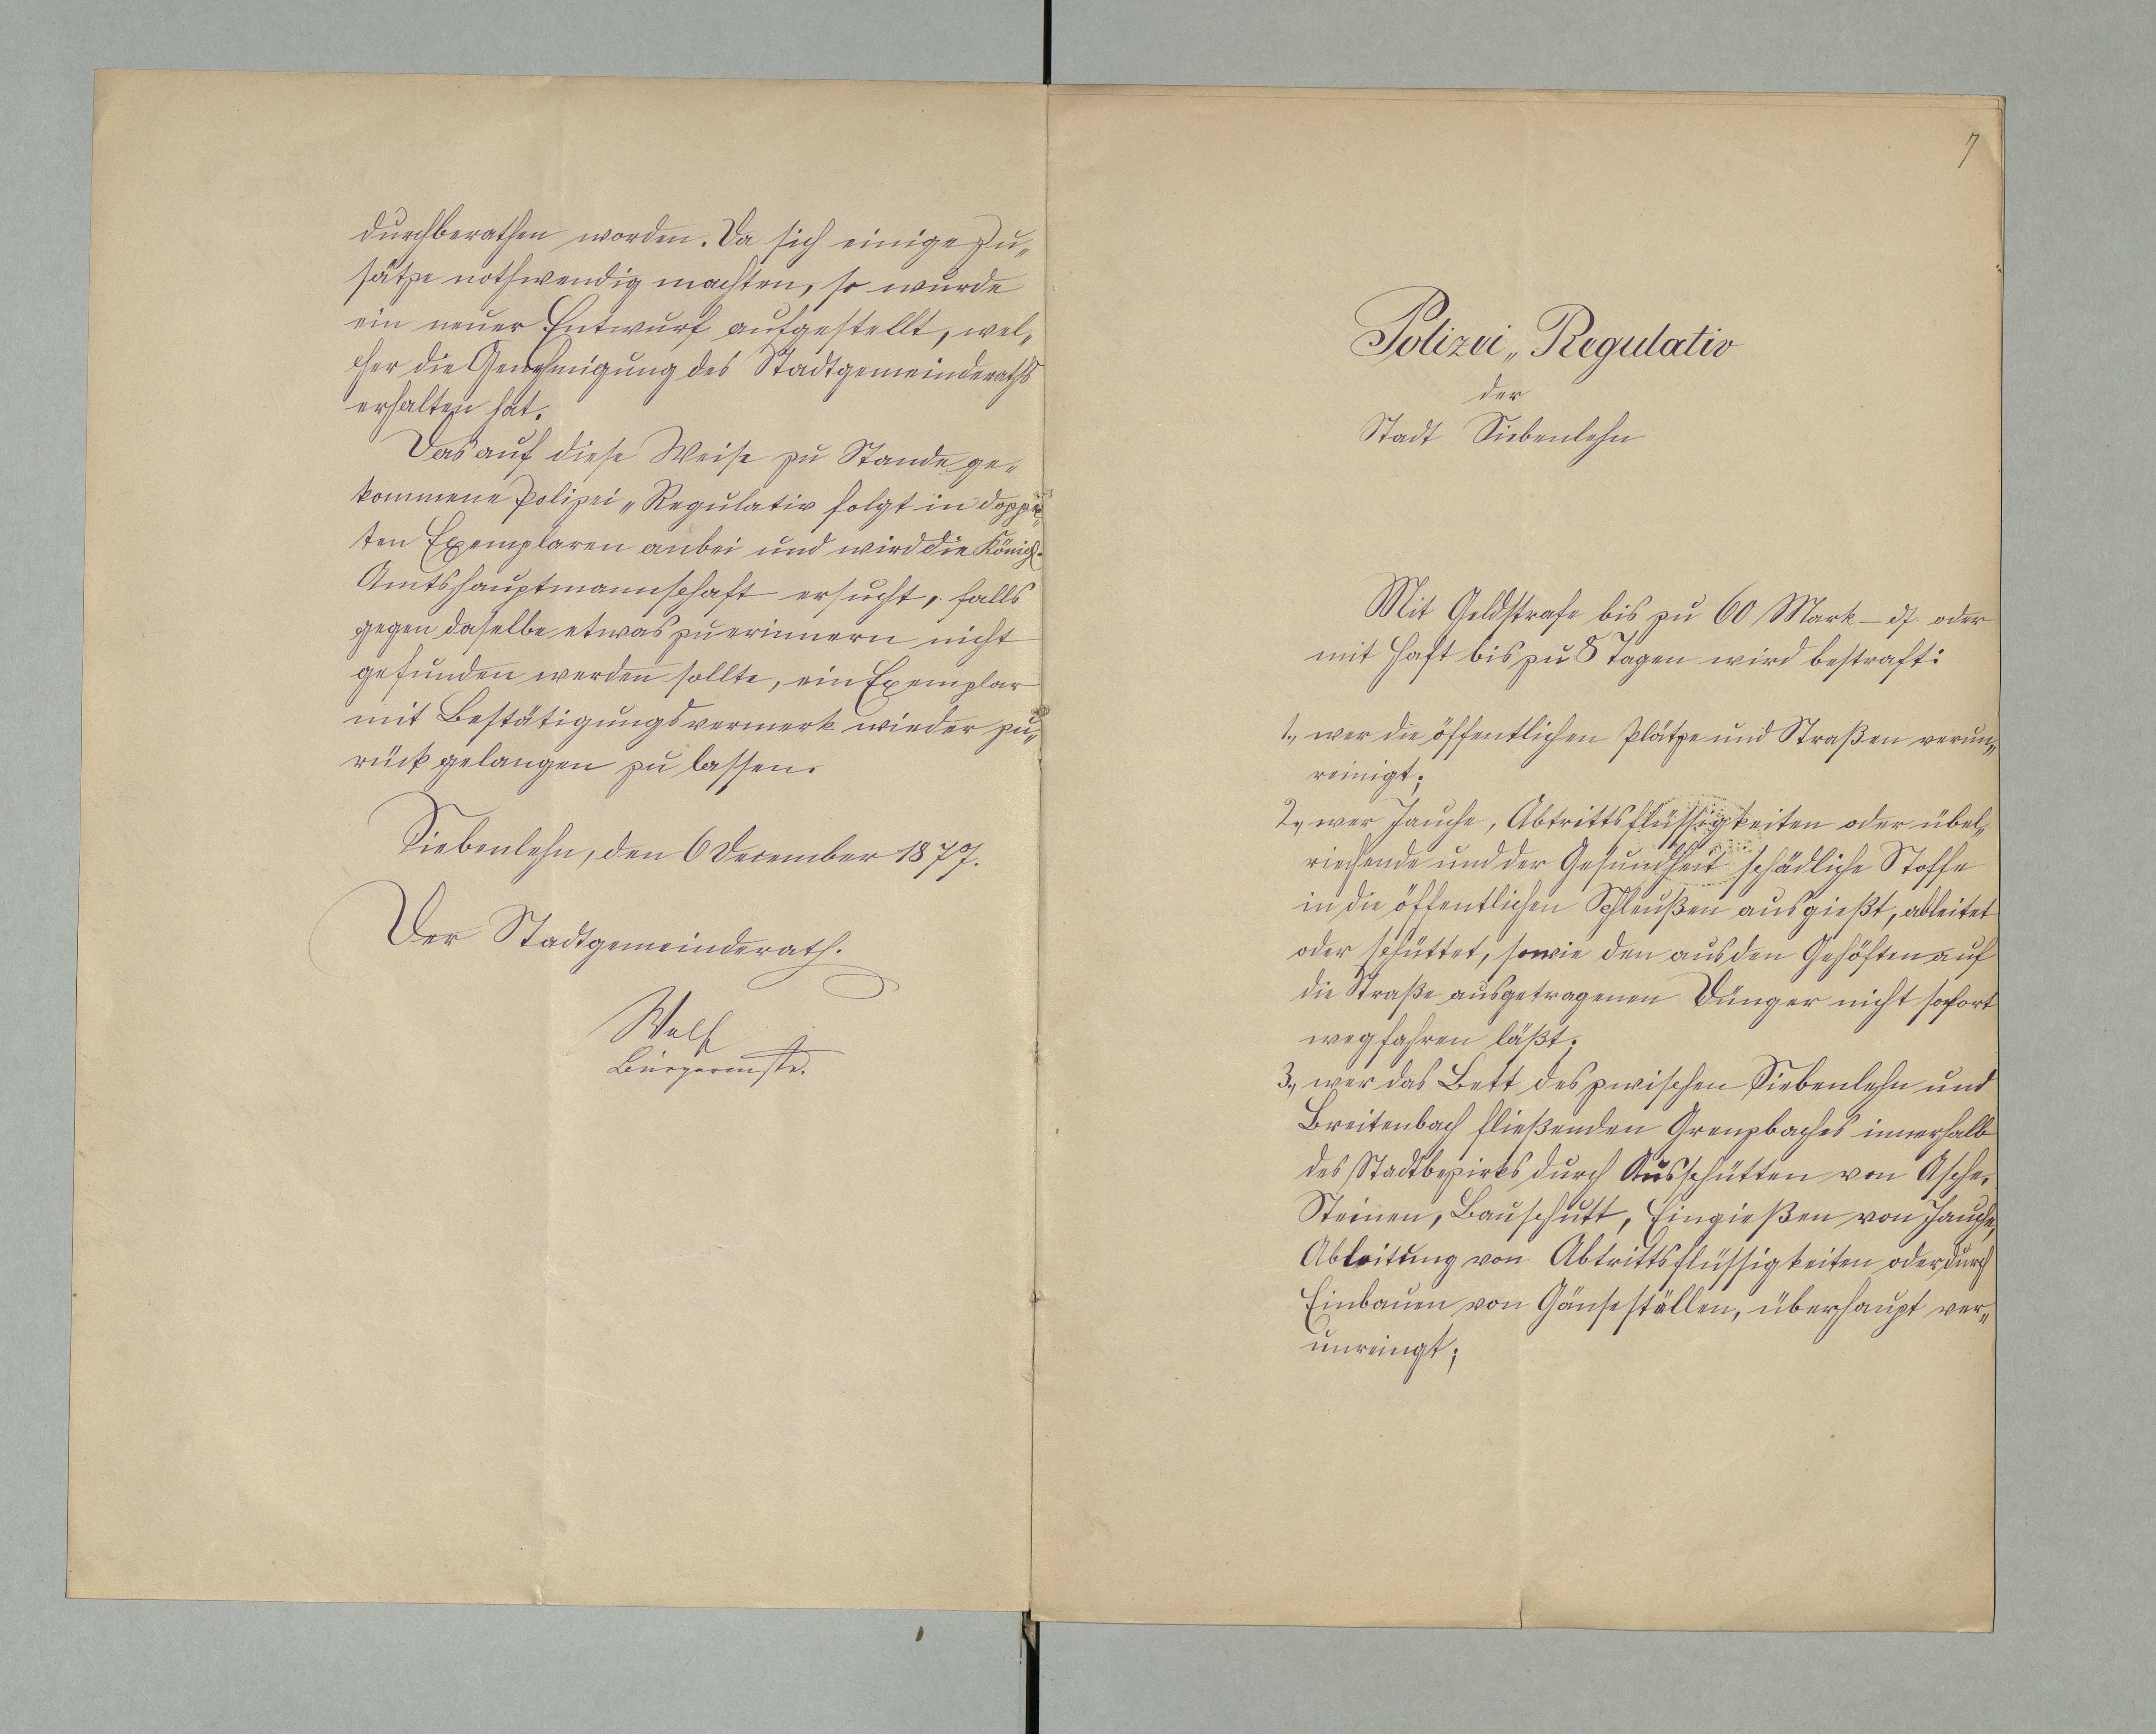 durchberathen worden. Da sich einige Zu„
sätze nothwendig machten, so wurde
ein neuer Entwurf aufgestellt, wel„
cher die Genehmigung des Stadtgemeinderaths
erhalten hat.
Das auf diese Weise zu Stande ge„
kommene Polizei„Regulativ folgt in doppel„
ten Exemplaren anbei und wird die Königl.
Amtshauptmannschaft ersucht, falls
gegen daselbe etwas zu erinnern nicht
gefunden werden sollte, ein Exemplar
mit Bestätigungsvermerk wieder zu„
rück gelangen zu lassen.
Siebenlehn, den 6 December 1877.
Der Stadtgemeinderath.
Bürgermstr.
7
Polizei„Regulativ
der
Stadt Siebenlehn
Mit Geldstrafe bis zu 60 Mark – ₰ oder
mit Haft bis zu 8 Tagen wird bestraft:
1., wer die öffentlichen Plätze und Straßen verun„
reinigt;
2., wer Jauche, Abtrittsflüssigkeiten oder übel„
riechende und der Gesundheit schädliche Stoffe
in die öffentlichen Schleußen ausgießt, ableitet
oder schüttet, sowie den aus den Gehöften auf
die Straße ausgetragenen Dünger nicht sofort
wegfahren läßt;
3., wer das Bett des zwischen Siebenlehn und
Breitenbach fließenden Grenzbaches innerhalb
des Stadtbezirks durch Ausschütten von Asche,
Steinen, Bauschutt, Eingießen von Jauche,
Ableitung von Abtrittsflüssigkeiten oder durch
Einbauen von Gänseställen, überhaupt ver„
unreingt;